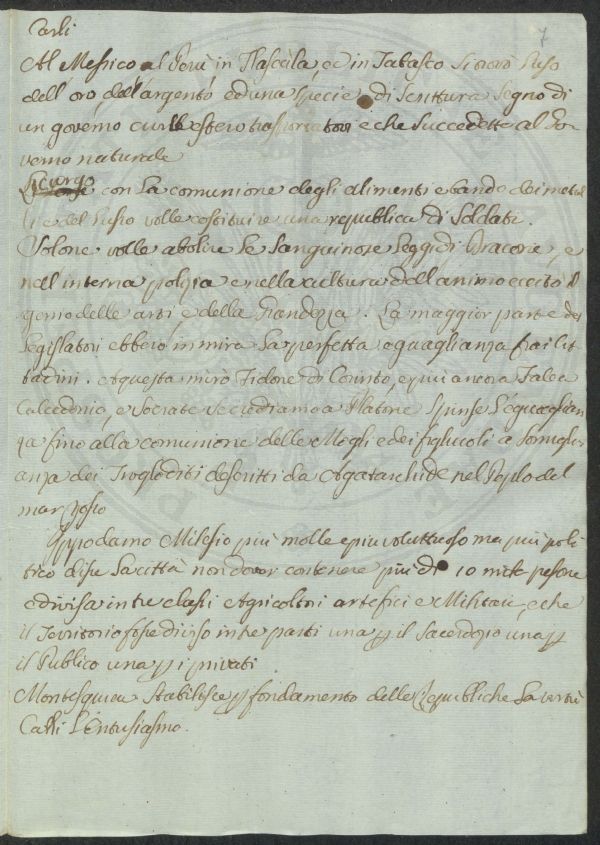 Carli
Al Messico al Perù in Tlascala, ed in Tabasco si trovò l'uso
dell'oro, dell'argento ed una specie di Scrittura segno di
un governo e che succedette al Go-
verno naturale
Licurgo con la comunione degli alimenti e bando dei metal
li e del lusso volle costituire una repubblica di Soldati.
Solone volle abolire le sanguinose leggi di Dracone, e
nell'interna polizia e nella cultura dell'animo eccitò il
genio delle arti, e della grandezza. La maggior parte dei
Legislatori ebbero in mira la perfetta eguaglianza fra i Cit
tadini. A questa mirò Fidone di Corinto, e più ancora Falea
Calcedonio, e Socrate se crediamo a Platone spinse l'eguaglian
za fino alla comunione delle Mogli e dei figliuoli a somigli
anza dei Trogloditi descritti da Agatarchide nel Periplo del
mar Rosso
Ippodamo Milesio più molle e più voluttuoso ma più poli
tico disse la città non dover contenere più di 10 mille persone
e divisa in tre classi Agricoltori artefici e Militari, e che
il Territorio fosse diviso in tre parti una p il Sacerdozio una p
il Publico una p i privati
Montesquieu stabilisce p fondamento delle Repubbliche la virtù
Carli l'Entusiasmo.
7